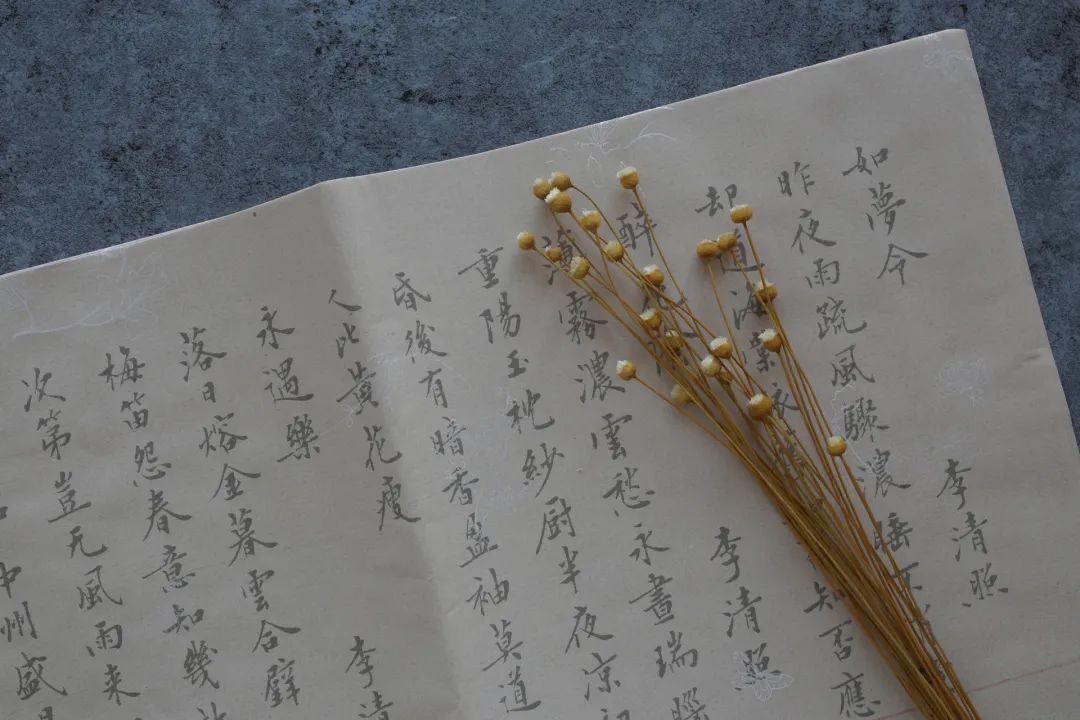 如夢令 李清照
昨夜雨疏風驟濃睡不
却道海棠依知否應
醉花 李清照
薄霧濃雲愁永晝瑞腦
重陽玉枕紗厨半夜凉初
昏後有暗香盈袖莫道
人比黃花瘦
永遇樂 李清
落日熔金暮雲合璧
梅笛怨春意知幾
次第豈无風雨来
中州盛